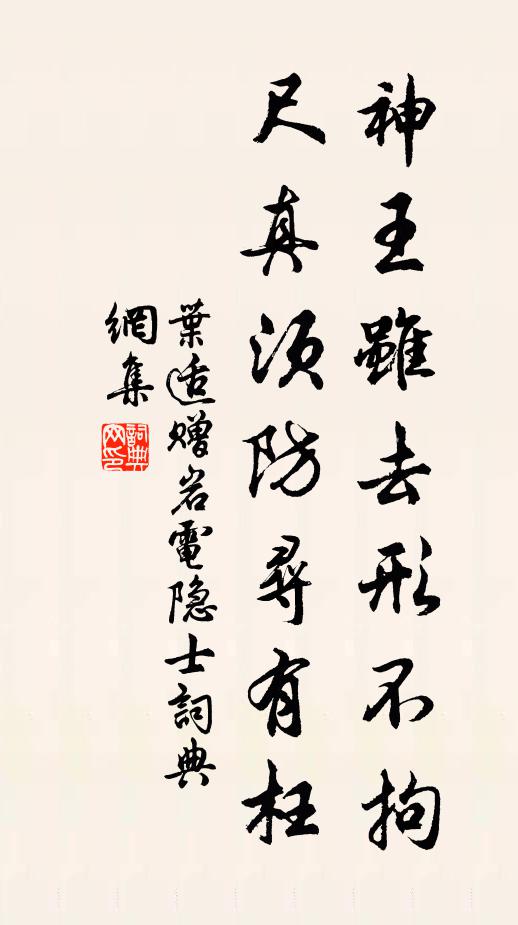 神王雖去形不拘
尺真須防尋有枉
葉适贈岩電隐士詞典
網集
詞典
网印